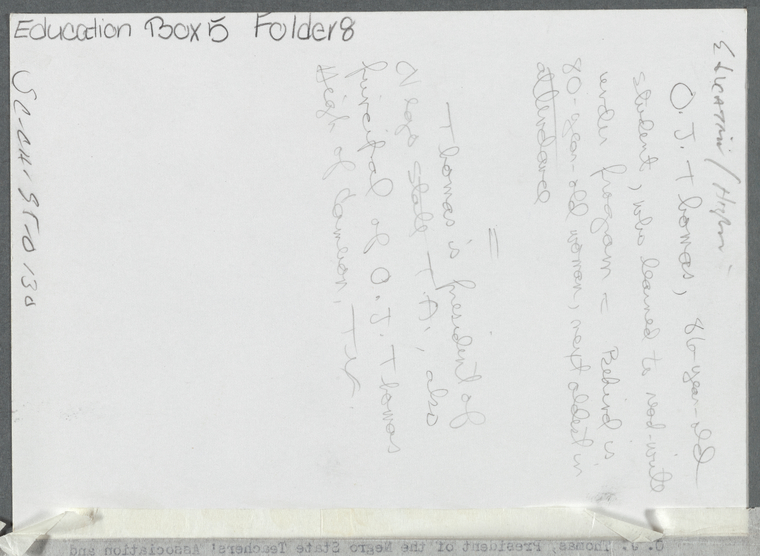 Education Box 5 Folder 8
SC-CN-95-0130
O. J. Thomas, 86-year-old
student, who learned to read-write
under program = Behind is
80-year-old woman, next oldest in
attendance
=
Thomas is president of
Negro State T.A., also
principal of O. J. Thomas
High of Cameron, Tex.
O. J. Thomas, President of the Negro State Teachers' Association and